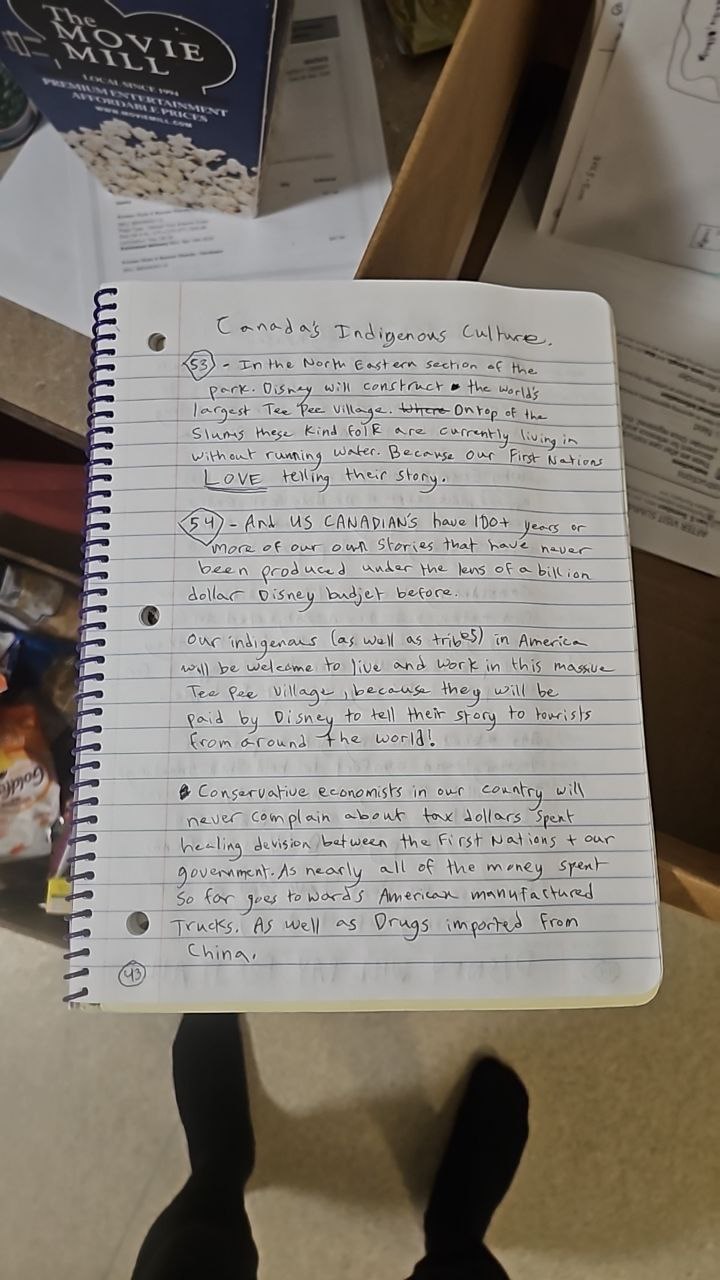 The
MOVIE
MILL
LOCAL SINCE 1994
PREMIUM ENTERTAINMENT
AFFORDABLE PRICES
WWW.MOVIEMILL.COM
Canada's Indigenous Culture.
53 - In the North Eastern section of the
park. Disney will construct the world's
largest Tee Pee Village. Where On top of the
Slums these kind folk are currently living in
without running water. Because our First Nations
LOVE telling their story.
54 - And US CANADIAN'S have 100+ years or
more of our own stories that have never
been produced under the lens of a billion
dollar Disney budjet before.
Our indigenous (as well as tribes) in America
will be welcome to live and work in this massive
Tee Pee Village, because they will be
paid by Disney to tell their story to tourists
from around the world!
Conservative economists in our country will
never complain about tax dollars spent
healing devision between the First Nations + our
government. As nearly all of the money spent
So far goes to words American manufactured
Trucks. As well as Drugs imported from
China.
43
Goldfis
AFTER VISIT SUMM